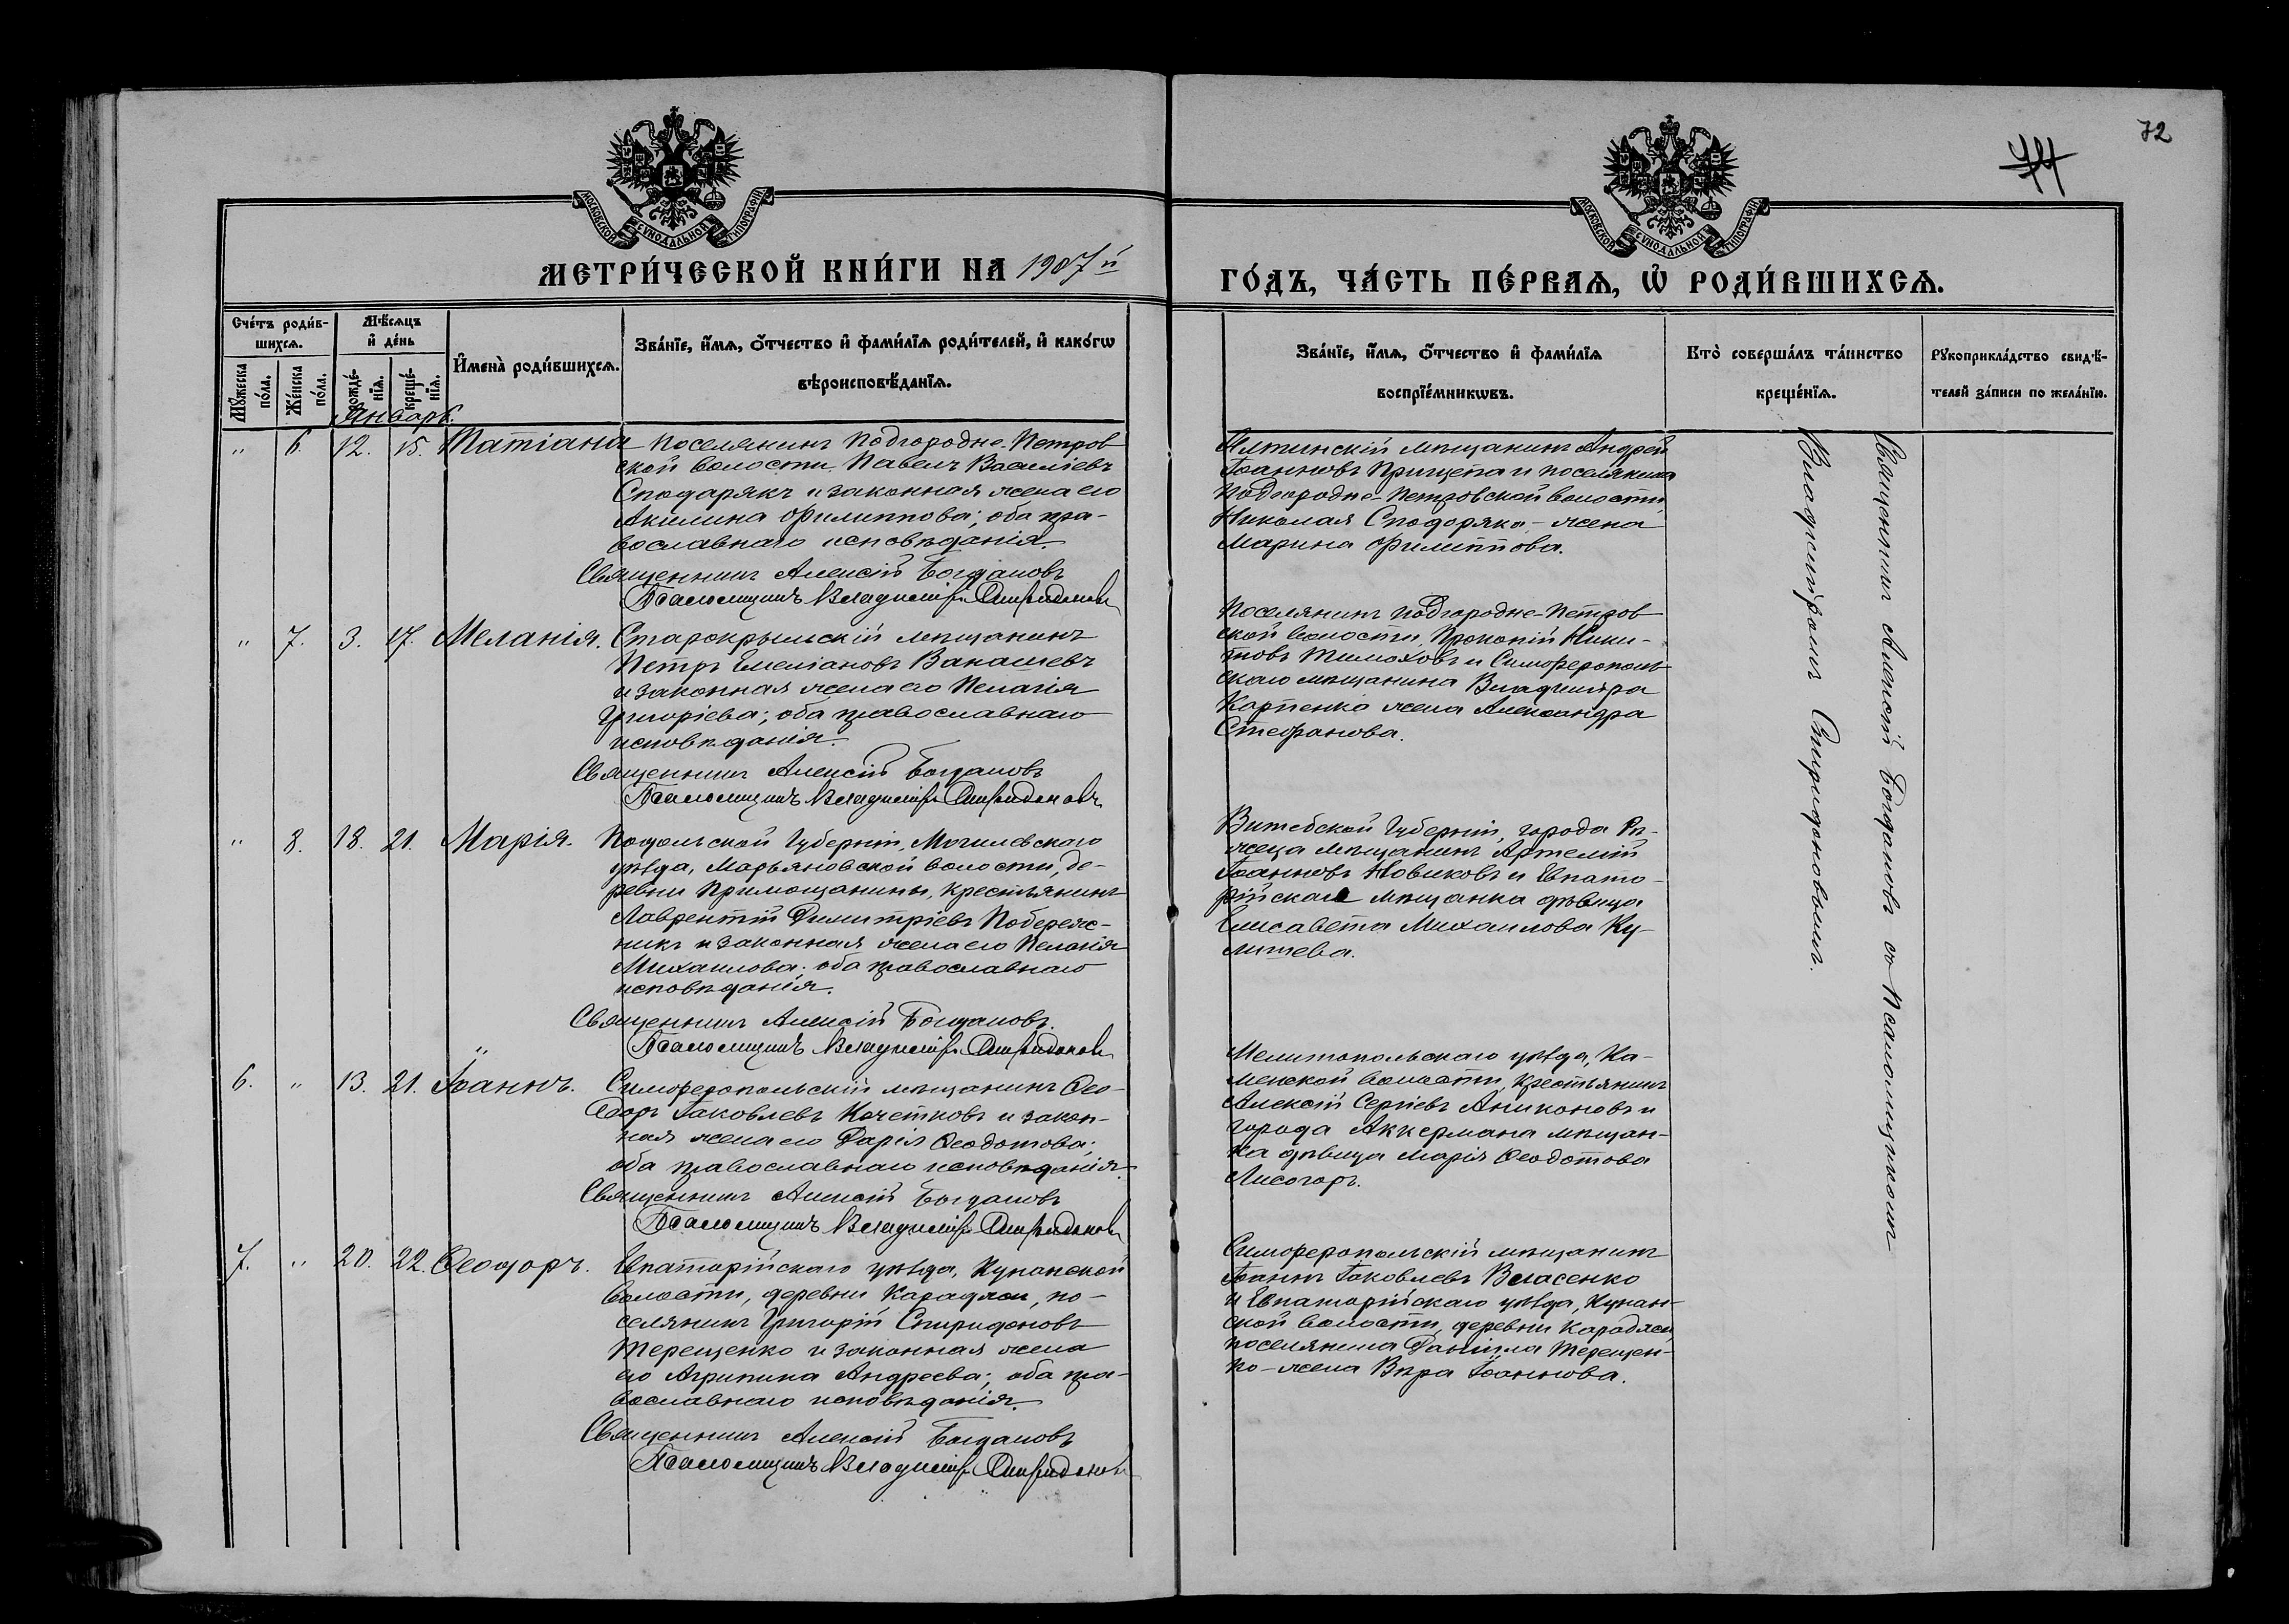 72
74
МОСКОВСКОЙ СѴНОДАЛЬНОЙ ТИПОГРАФІИ
МОСКОВСКОЙ СѴНОДАЛЬНОЙ ТИПОГРАФІИ
МЕТРИ́ЧЕСКОЙ КНИ́ГИ НА 1907й
ГО́ДЪ, ЧА́СТЬ ПЕ́РВАѦ, Ѡ҆ РОДИ́ВШИХСѦ.
Сче́тъ роди́в-
шихсѧ.
Мѣ́сяцъ
и҆ де́нь
Мꙋ́жеска
по́ла.
Же́нска
по́ла.
рожде́-
нїѧ.
креще́-
нїѧ.
И҆мена̀ роди́вшихсѧ.
Зва́нїе, и҆́мѧ, ѻ҆́тчество и҆ фами́лїѧ роди́телей, и҆ како́гѡ
вѣроисповѣ́данїѧ.
Зва́нїе, и҆́мѧ, ѻ҆́тчество и҆ фами́лїѧ
воспрїе́мникѡвъ.
Кто̀ соверша́лъ та́инство
креще́нїѧ.
Рꙋкоприкла́дство свидѣ́-
телей за́писи по жела́нїю.
Январь.
" 6. 12. 15. Татіана
Поселянинъ Подгородне-Петров
ской волости Павелъ Василіевъ
Сподарякъ и законная жена его
Акилина Филиппова; оба пра-
вославнаго исповѣданія.
Священникъ Алексій Богдановъ
Псаломщикъ Владиміръ Спиридоновъ
Ялтинскій мѣщанинъ Андрей
Іоанновъ Прищепа и поселянина
Подгородне-Петровской волости,
Николая Сподоряка - жена
Марина Филиппова.
" 7. 3. 17. Меланія.
Старокрымскій мѣщанинъ
Петръ Емеліановъ
и законная жена его Пелагія
Григоріева; оба православнаго
исповѣданія.
Священникъ Алексій Богдановъ
Псаломщикъ Владиміръ Спиридоновъ
Поселянинъ Подгородне-Петров
ской волости, Прокопій Ники-
товъ Тимоховъ и Симферополь-
скаго мѣщанина Владиміра
Карпенко жена Александра
Стефанова.
" 8. 18. 21. Марія.
Подольской Губерніи, Могилевскаго
уѣзда, Марьяновской волости, де-
ревни Примощаницы, крестьянинъ
Лаврентій Димитріевъ Побереж-
никъ и законная жена его Пелагія
Михаилова; оба православнаго
исповѣданія.
Священникъ Алексій Богдановъ.
Псаломщикъ Владиміръ Спиридоновъ
Витебской Губерніи, города Рѣ-
жеца мѣщанинъ Артемій
Іоанновъ Новиковъ и Евпато-
рійская мѣщанка дѣвица
Елисавета Михаилова Ку-
литева.
6. " 13. 21. Іоаннъ.
Симферопольскій мѣщанинъ Ѳео-
доръ Іаковлевъ Кочетковъ и закон-
ная жена его Дарія Ѳеодотова;
оба православнаго исповѣданія.
Священникъ Алексій Богдановъ
Псаломщикъ Владиміръ Спиридоновъ
Мелитопольскаго уѣзда, Ка-
менской волости, крестьянинъ
Алексій Сергіевъ Аниконовъ и
города Аккермана мѣщан-
ка дѣвица Марія Ѳеодотова
Лисогоръ.
7. " 20. 22. Ѳеодоръ.
Евпаторійскаго уѣзда, Кунанской
волости, деревни Караджи, по-
селянинъ Григорій Спиридоновъ
Терещенко и законная жена
его Агрипина Андреева; оба пра-
вославнаго исповѣданія.
Священникъ Алексій Богдановъ
Псаломщикъ Владиміръ Спиридоновъ
Симферопольскій мѣщанинъ
Іоаннъ Іаковлевъ Власенко
и Евпаторійскаго уѣзда, Кунан-
ской волости, деревни Караджи,
поселянина Даніила Терещен-
ко - жена Вѣра Іоаннова.
Священникъ Алексій Богдановъ съ Псаломщикомъ
Владиміромъ Спиридоновымъ.